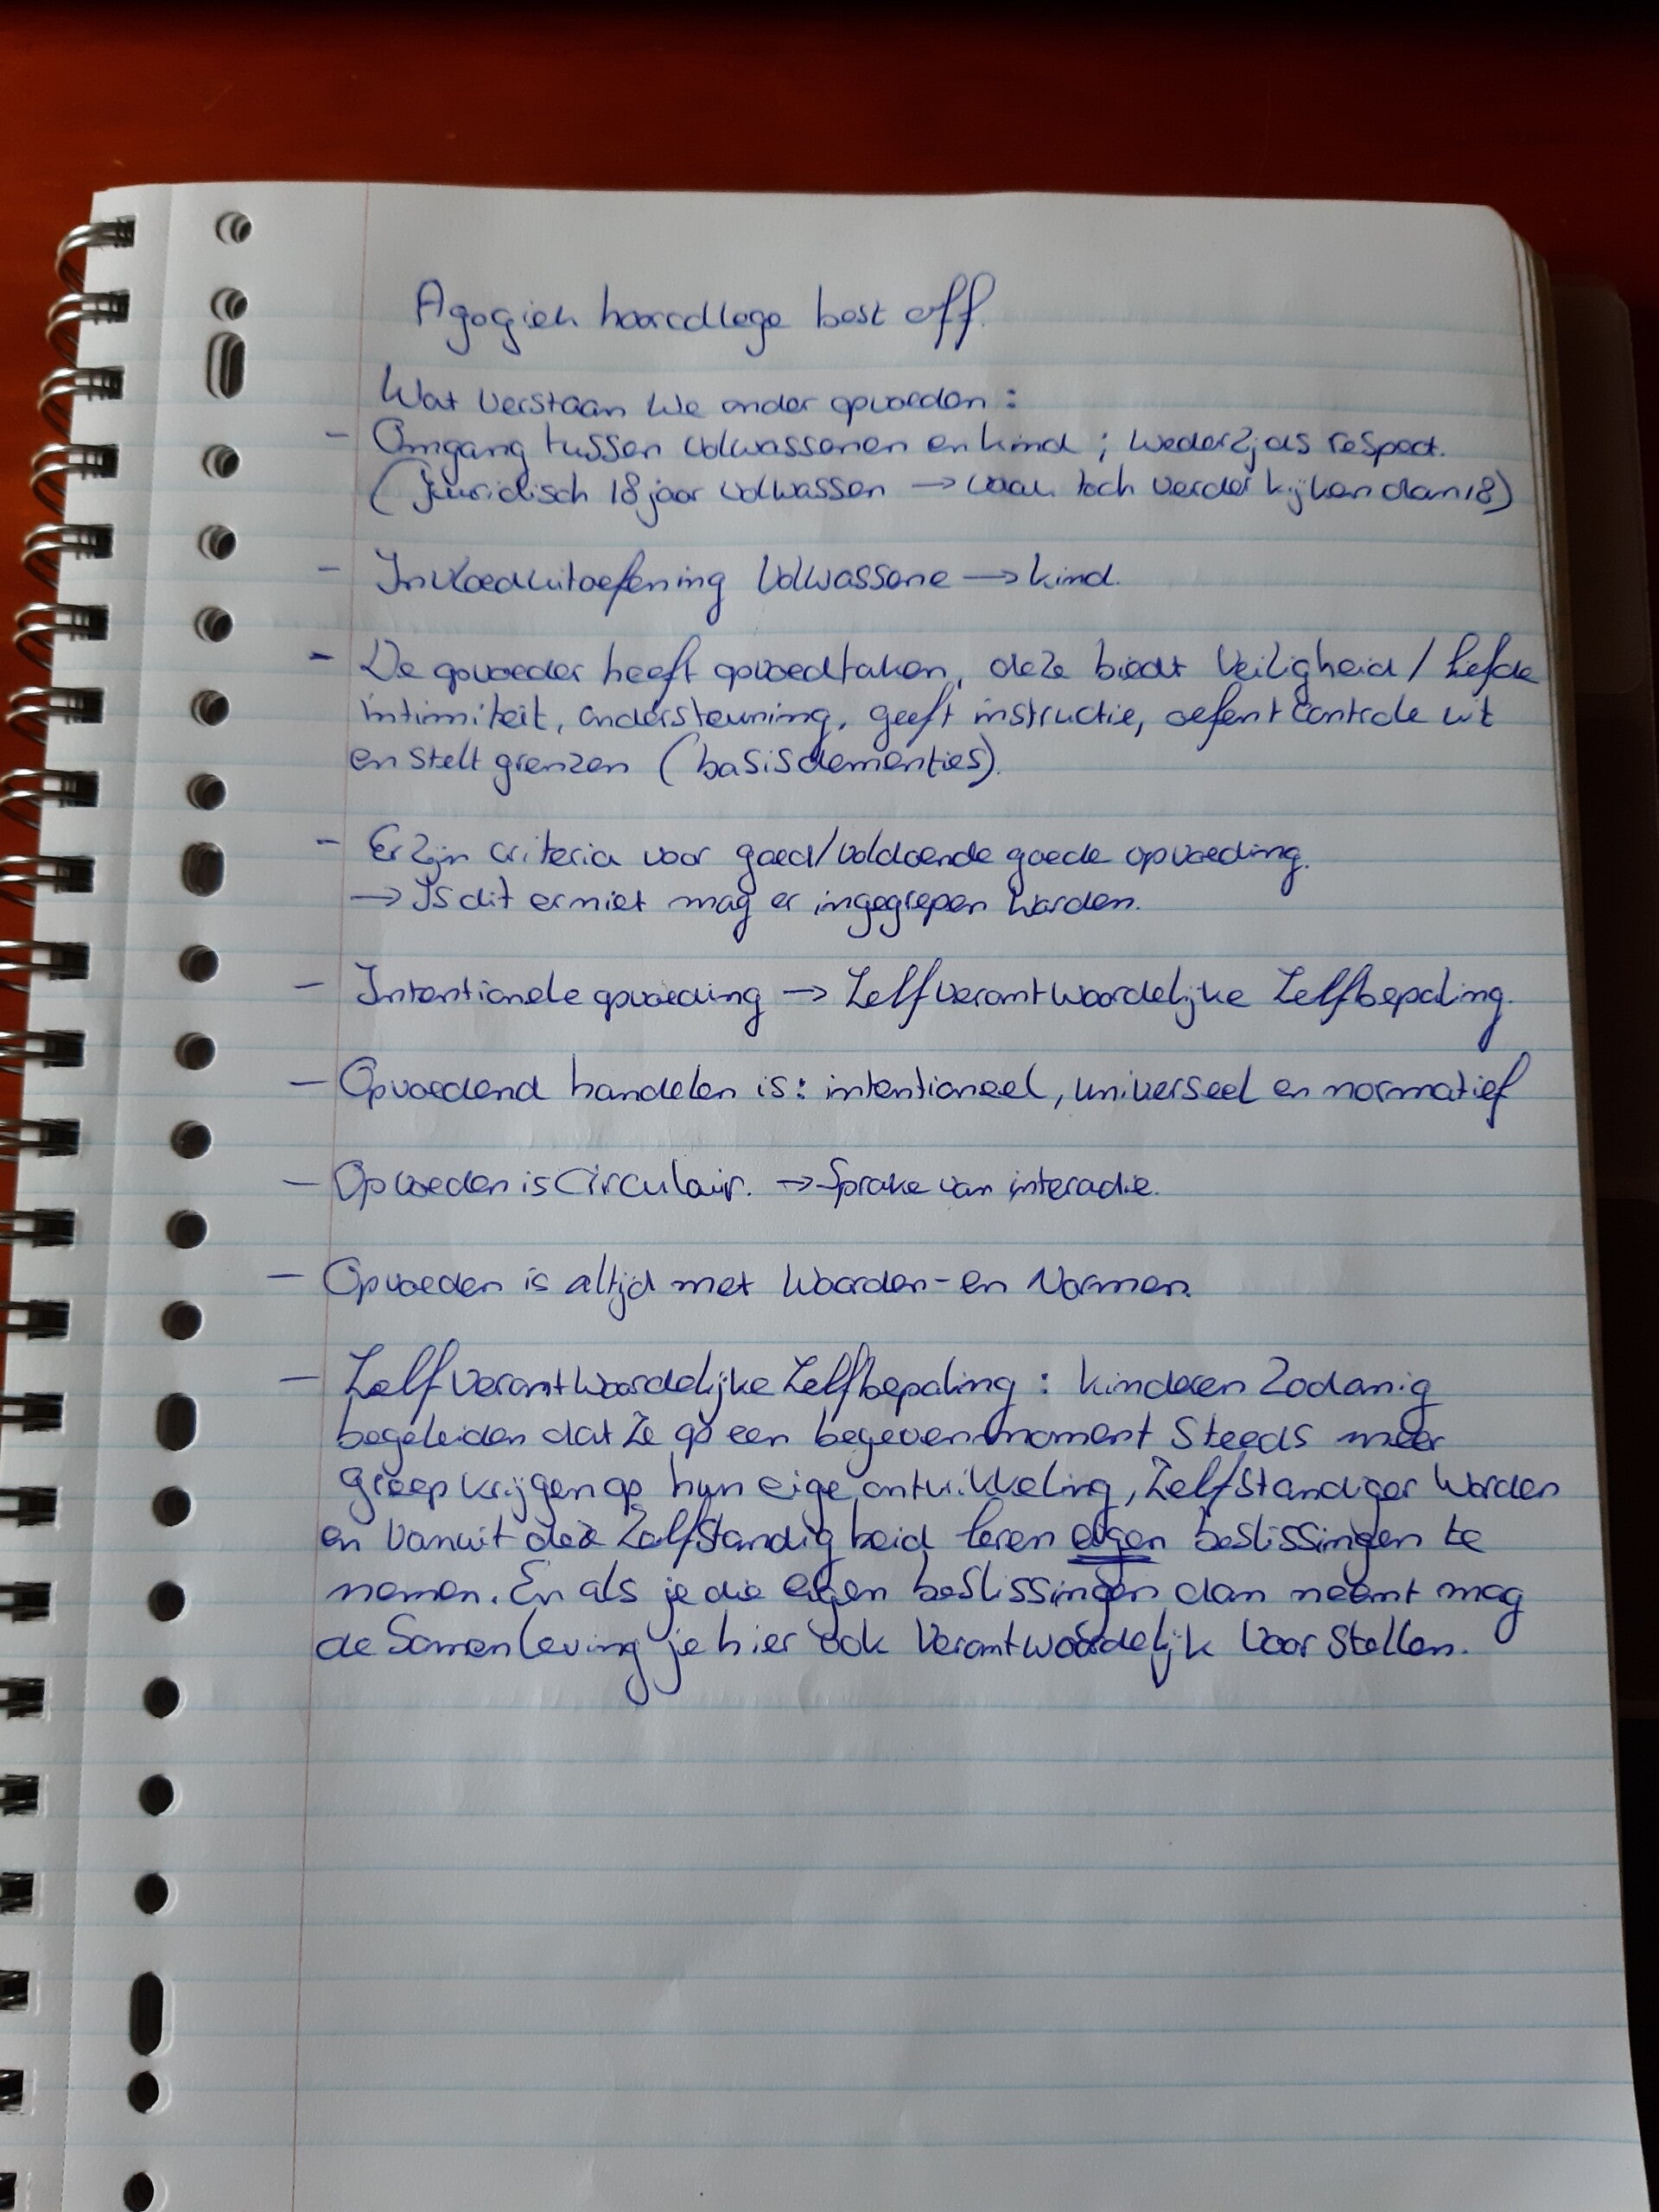 Agogiek hoorcollege best off.
Wat verstaan we onder opvoeden :
- Omgang tussen volwassenen en kind ; wederzijds respect.
(Juridisch 18 jaar volwassen → vaak toch verder kijken dan 18)
- Invloeduitoefening volwassene → kind.
- De opvoeder heeft opvoedtaken, deze biedt veiligheid / liefde
intimiteit, ondersteuning, geeft instructie, oefent controle uit
en stelt grenzen (basisdementies).
- Er zijn criteria voor goed/voldoende goede opvoeding.
→ Is dit er niet mag er ingegrepen worden.
- Intentionele opvoeding → Zelfverantwoordelijke Zelfbepaling.
- Opvoedend handelen is: intentioneel, universeel en normatief
- Opvoeden is Circulair. → Sprake van interactie.
- Opvoeden is altijd met Waarden- en Normen.
- Zelfverantwoordelijke Zelfbepaling : kinderen zodanig
begeleiden dat ze op een begeven moment steeds meer
greep krijgen op hun eige ontwikkeling, Zelfstandiger worden
en vanuit deze Zelfstandigheid leren eigen beslissingen te
nemen. En als je die eigen beslissingen dan neemt mag
de Samenleving je hier ook verantwoordelijk voor stellen.